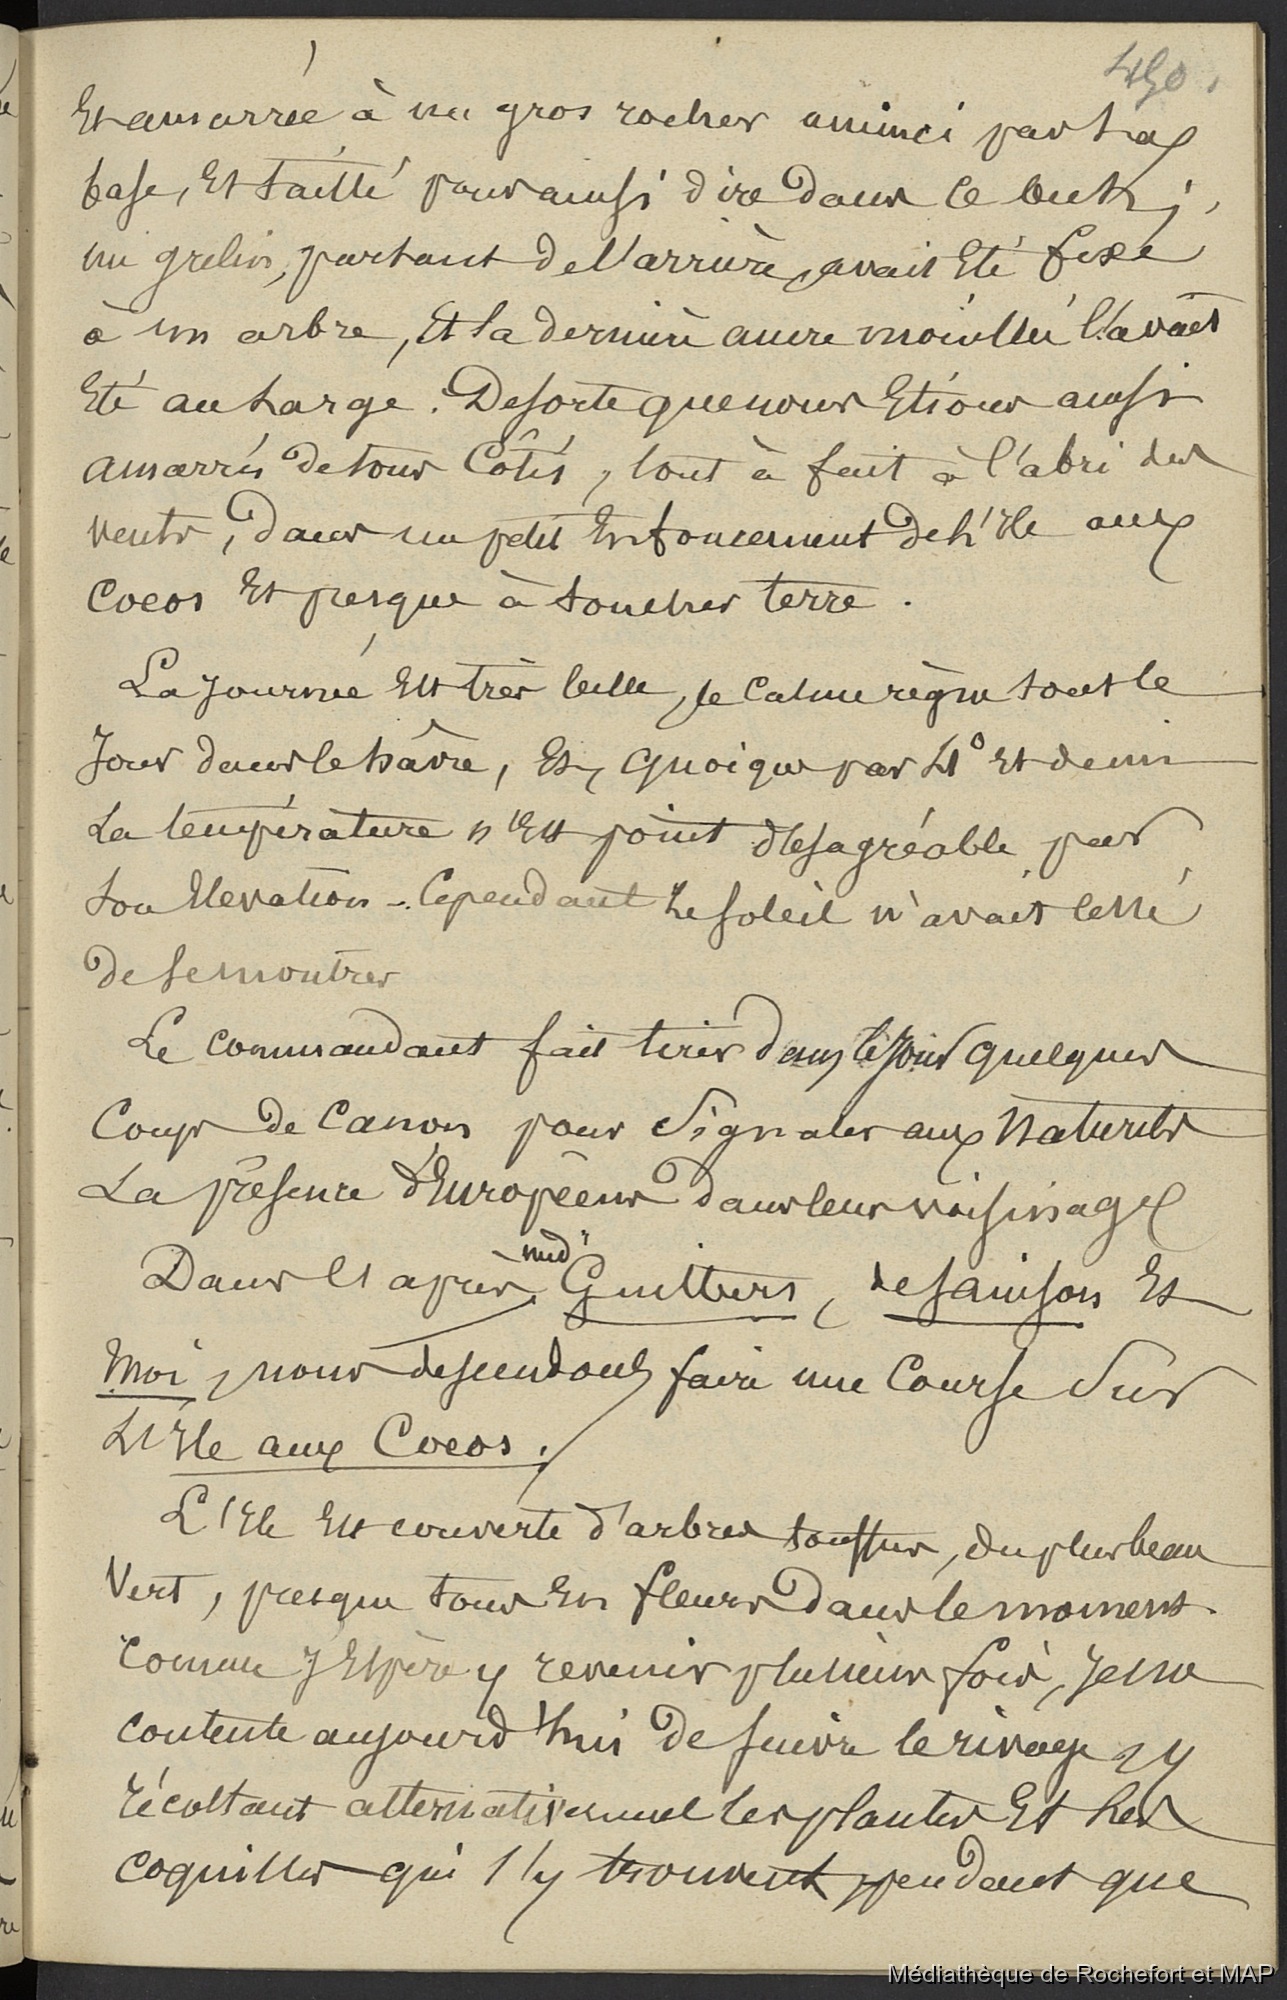 450.
Et amarrée à un gros rocher aminci par La
base, Et taillé pour ainsi dire dans ce but ;
un grelin, partant de l'arrière, avait Eté fixé
à un arbre, Et La dernière ancre mouillée l'avait
Eté au Large. De sorte que nous Etions ainsi
amarrés de tous Côtés, tout à fait à l'abri des
vents, dans un petit Enfoncement de L'Ile aux
Cocos Et presque à toucher terre.
La journée Est très belle, le calme règne tout le
Jour dans le hâvre, Et, quoique par 4° Et demi
La température n'Est point désagréable par
Son Elevation. Cependant Le soleil n'avait cessé
de se montrer
Le commandant fait tirer dans le jour quelques
Coups de Canon pour Signaler aux Naturels
La présence d'Européens dans leur voisinage
Dans l'après midi Guilbers, de Sainson Et
Moi, nous descendons faire une Course Sur
L'Ile aux Cocos.
L'Ile Est couverte d'arbres touffus, du plus beau
Vert, presque tous En fleurs dans le moment.
Comme J'Espère y revenir plusieurs fois, Je me
contente aujourd'hui de suivre le rivage, y
récoltant alternativement les plantes Et Les
coquilles qui s'y trouvent, pendant que
Médiathèque de Rochefort et MAP